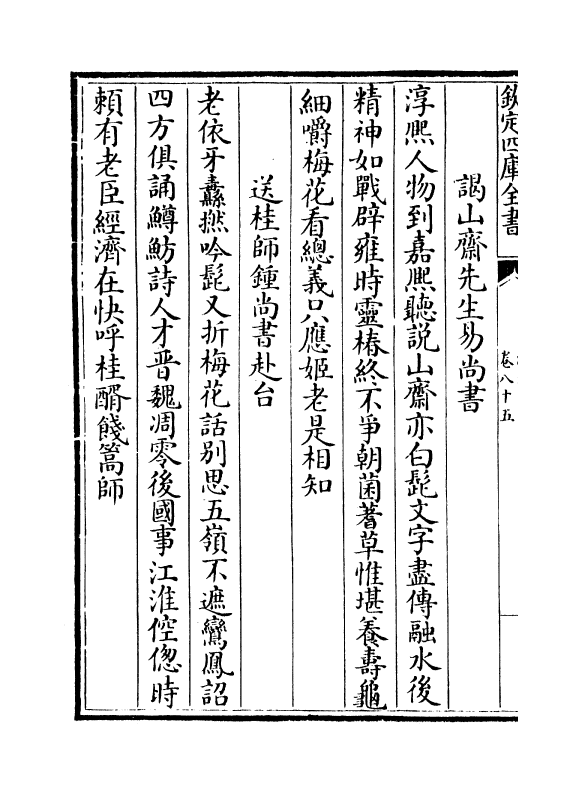 欽定四庫全書
卷八十五
謁山齋先生易尚書
淳熙人物到嘉熙聽説山齋亦白髭文字盡傳融水後
精神如戰辟雍時靈椿終不爭朝菌蓍草惟堪養壽龜
細嚼梅花看總義只應姬老是相知
送桂師鍾尚書赴台
老依牙纛撚吟髭又折梅花話别思五嶺不遮鸞鳳詔
四方俱誦鱒魴詩人才晉魏凋零後國事江淮倥偬時
頼有老臣經濟在快呼桂醑餞篙師